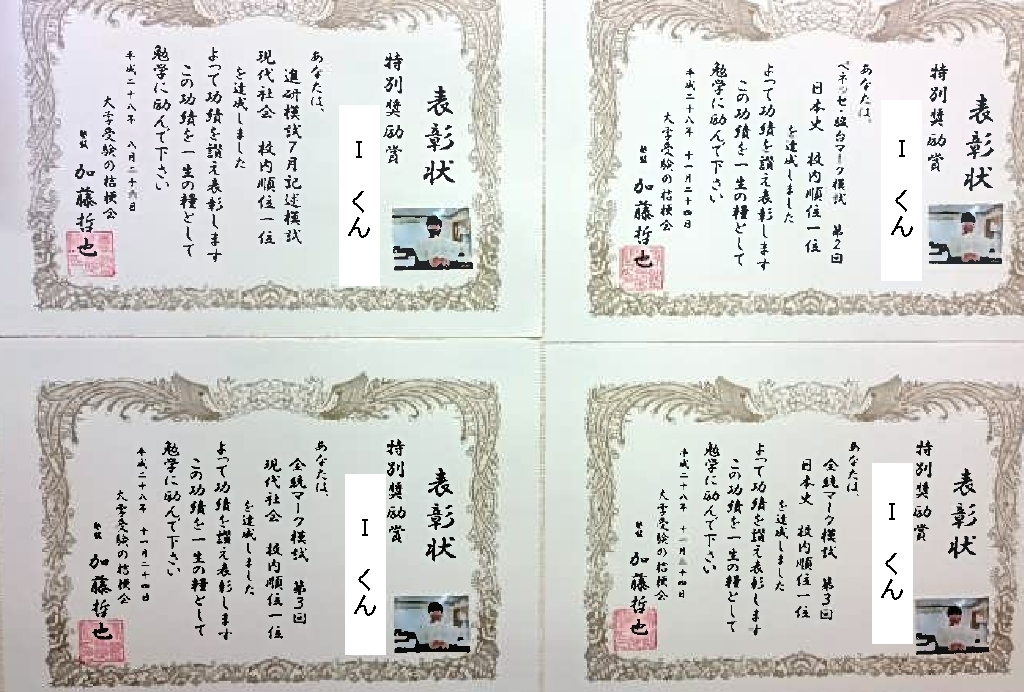 表彰状
特別奨励賞
I くん
あなたは、
進研模試7月記述模試
現代社会 校内順位一位
を達成しました
よって功績を讃え表彰します
この功績を一生の糧として
勉学に励んで下さい
平成二十八年 八月二十六日
大学受験の桔梗会
塾長 加藤哲也
表彰状
特別奨励賞
I くん
あなたは、
ベネッセ・駿台マーク模試 第2回
日本史 校内順位一位
を達成しました
よって功績を讃え表彰します
この功績を一生の糧として
勉学に励んで下さい
平成二十八年 十一月二十四日
大学受験の桔梗会
塾長 加藤哲也
表彰状
特別奨励賞
I くん
あなたは、
全統マーク模試 第3回
現代社会 校内順位一位
を達成しました
よって功績を讃え表彰します
この功績を一生の糧として
勉学に励んで下さい
平成二十八年 十一月二十四日
大学受験の桔梗会
塾長 加藤哲也
表彰状
特別奨励賞
I くん
あなたは、
全統マーク模試 第3回
日本史 校内順位一位
を達成しました
よって功績を讃え表彰します
この功績を一生の糧として
勉学に励んで下さい
平成二十八年 十一月二十四日
大学受験の桔梗会
塾長 加藤哲也